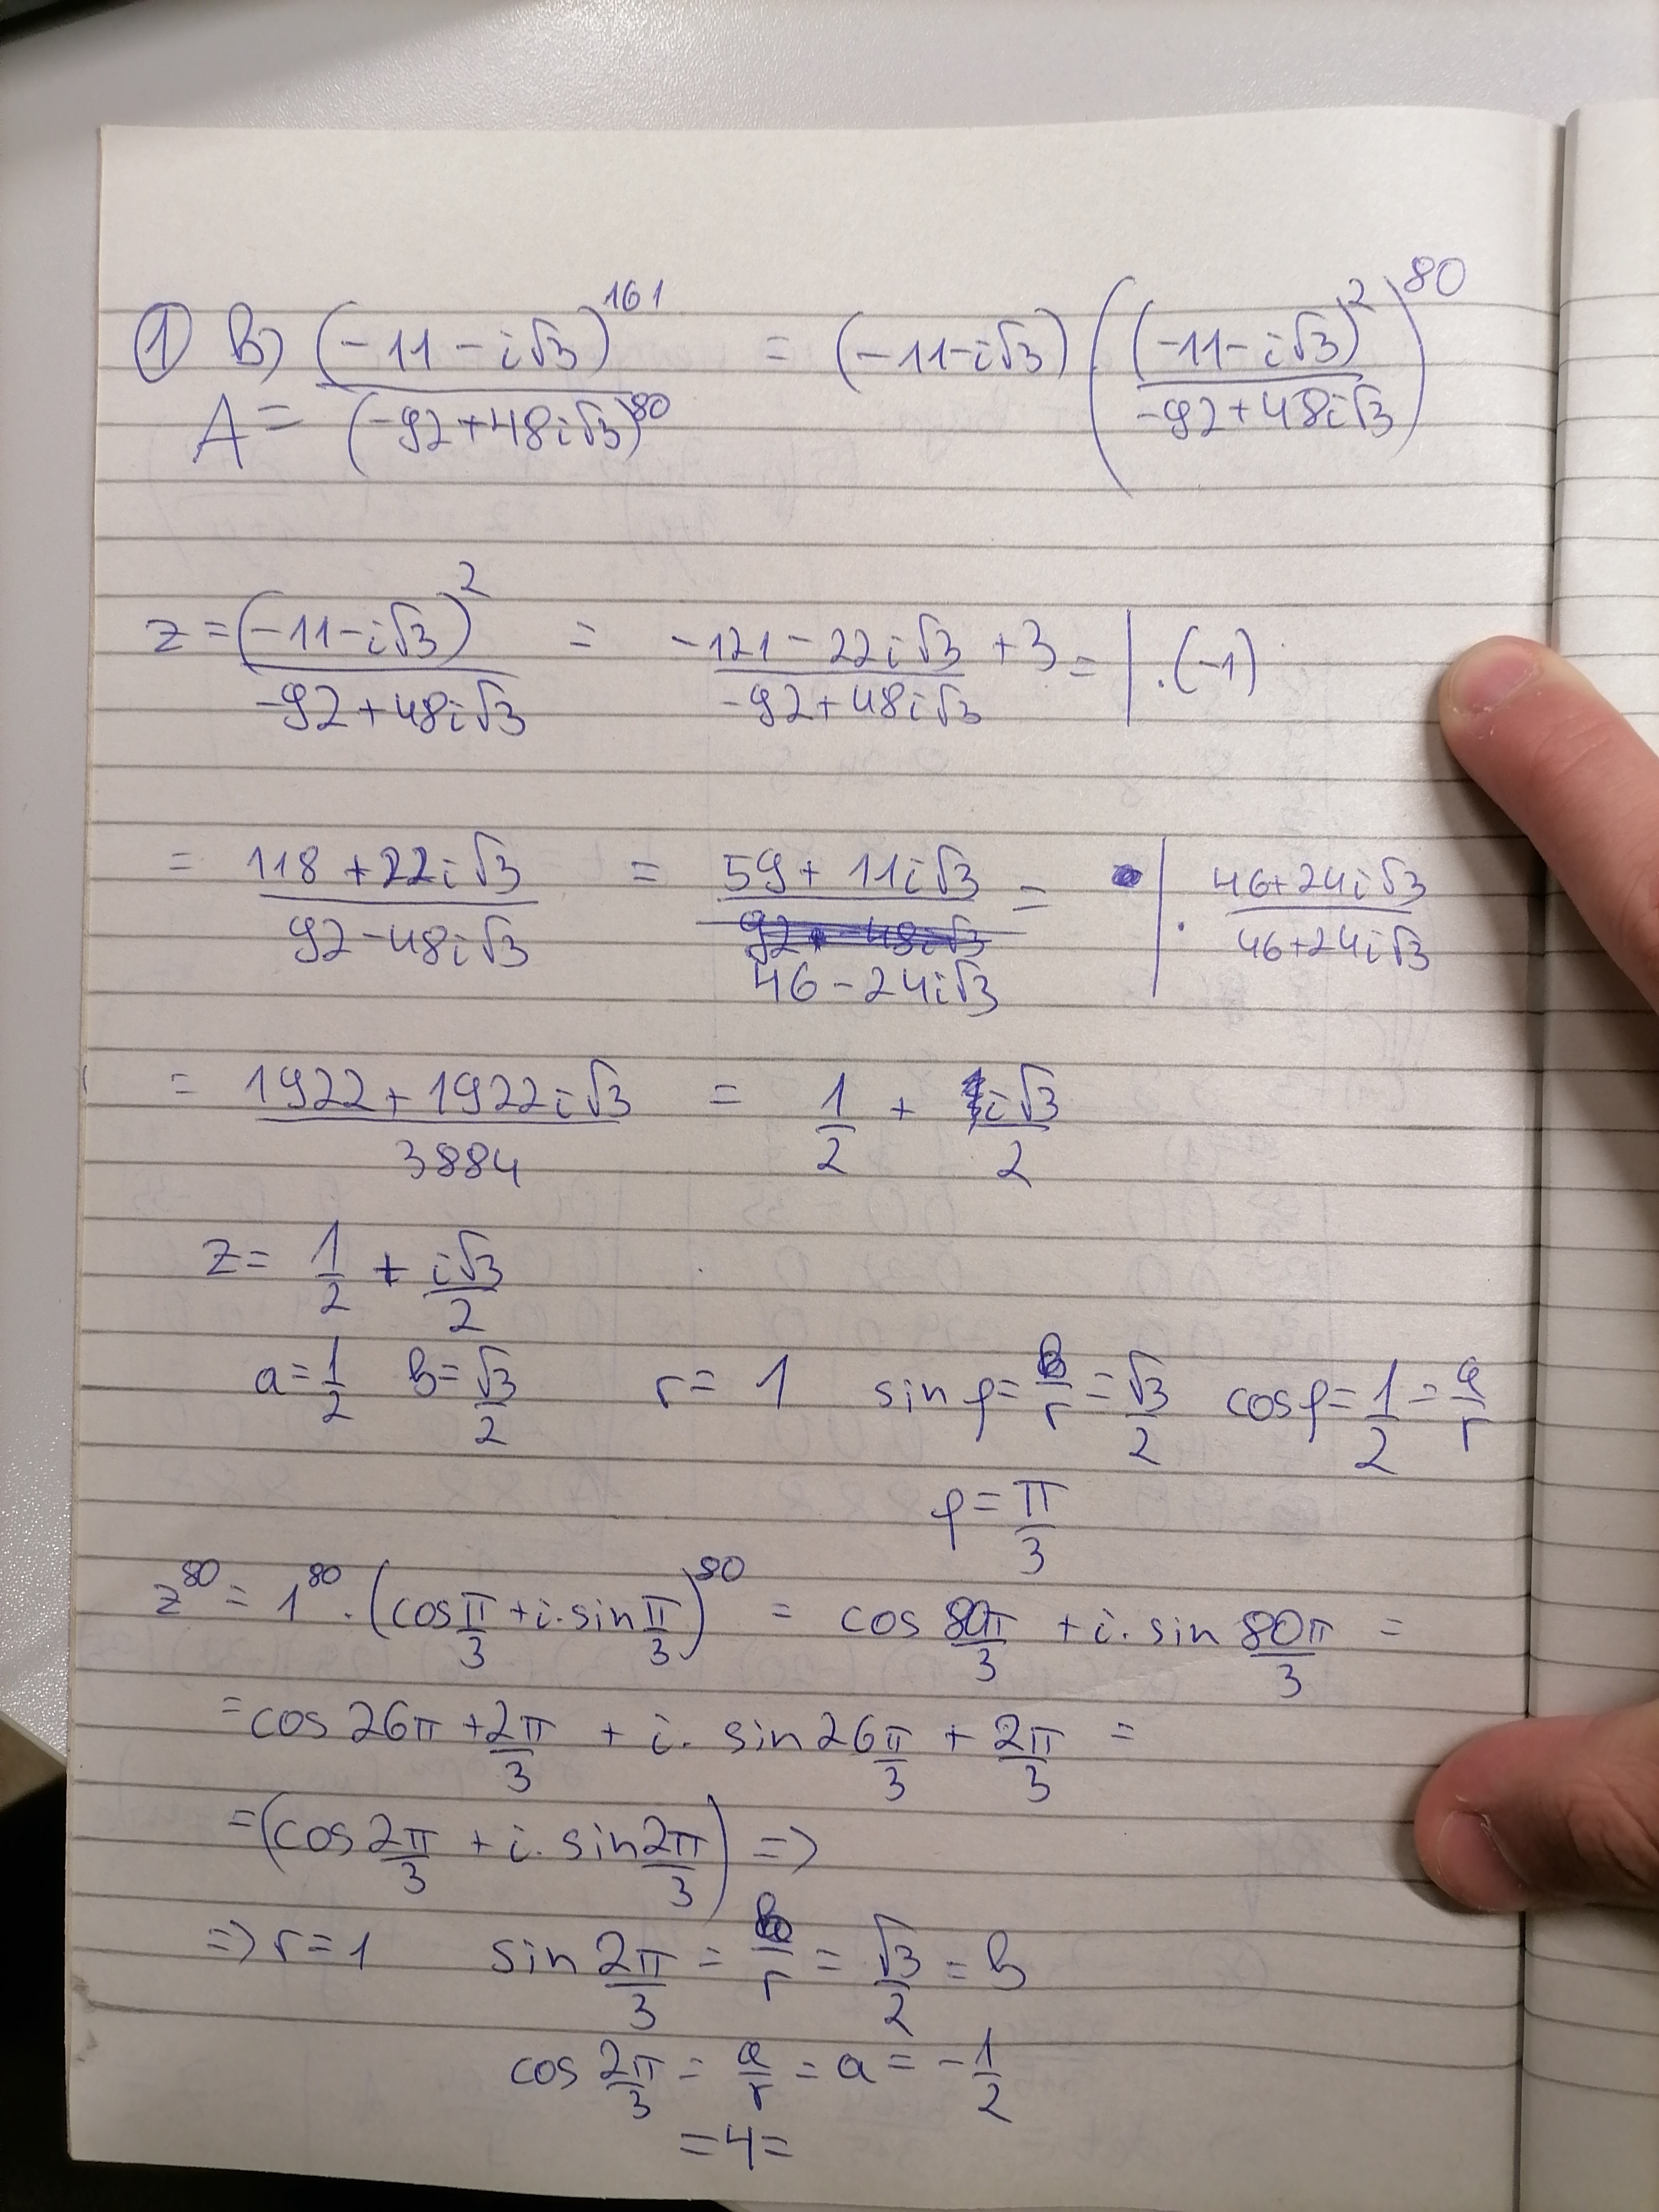 ① B) (-11-i√3)^161 / (-92+48i√3)^80 = (-11-i√3) · ((-11-i√3)^2 / (-92+48i√3))^80
A=
z = (-11-i√3)^2 / (-92+48i√3) = (-121-22i√3+3) / (-92+48i√3) = | ·(-1)
= (118+22i√3) / (92-48i√3) = (59+11i√3) / (46-24i√3) = | · (46+24i√3) / (46+24i√3)
= (1922+1922i√3) / 3884 = 1/2 + i√3/2
z = 1/2 + i√3/2
a = 1/2 b = √3/2 r = 1 sin φ = b/r = √3/2 cos φ = 1/2 = a/r
φ = π/3
z^80 = 1^80 · (cos π/3 + i·sin π/3)^80 = cos 80π/3 + i·sin 80π/3 =
= cos 26π + 2π/3 + i·sin 26π/3 + 2π/3 =
= (cos 2π/3 + i·sin 2π/3) =>
=> r = 1 sin 2π/3 = b/r = √3/2 = b
cos 2π/3 = a/r = a = -1/2
=4=